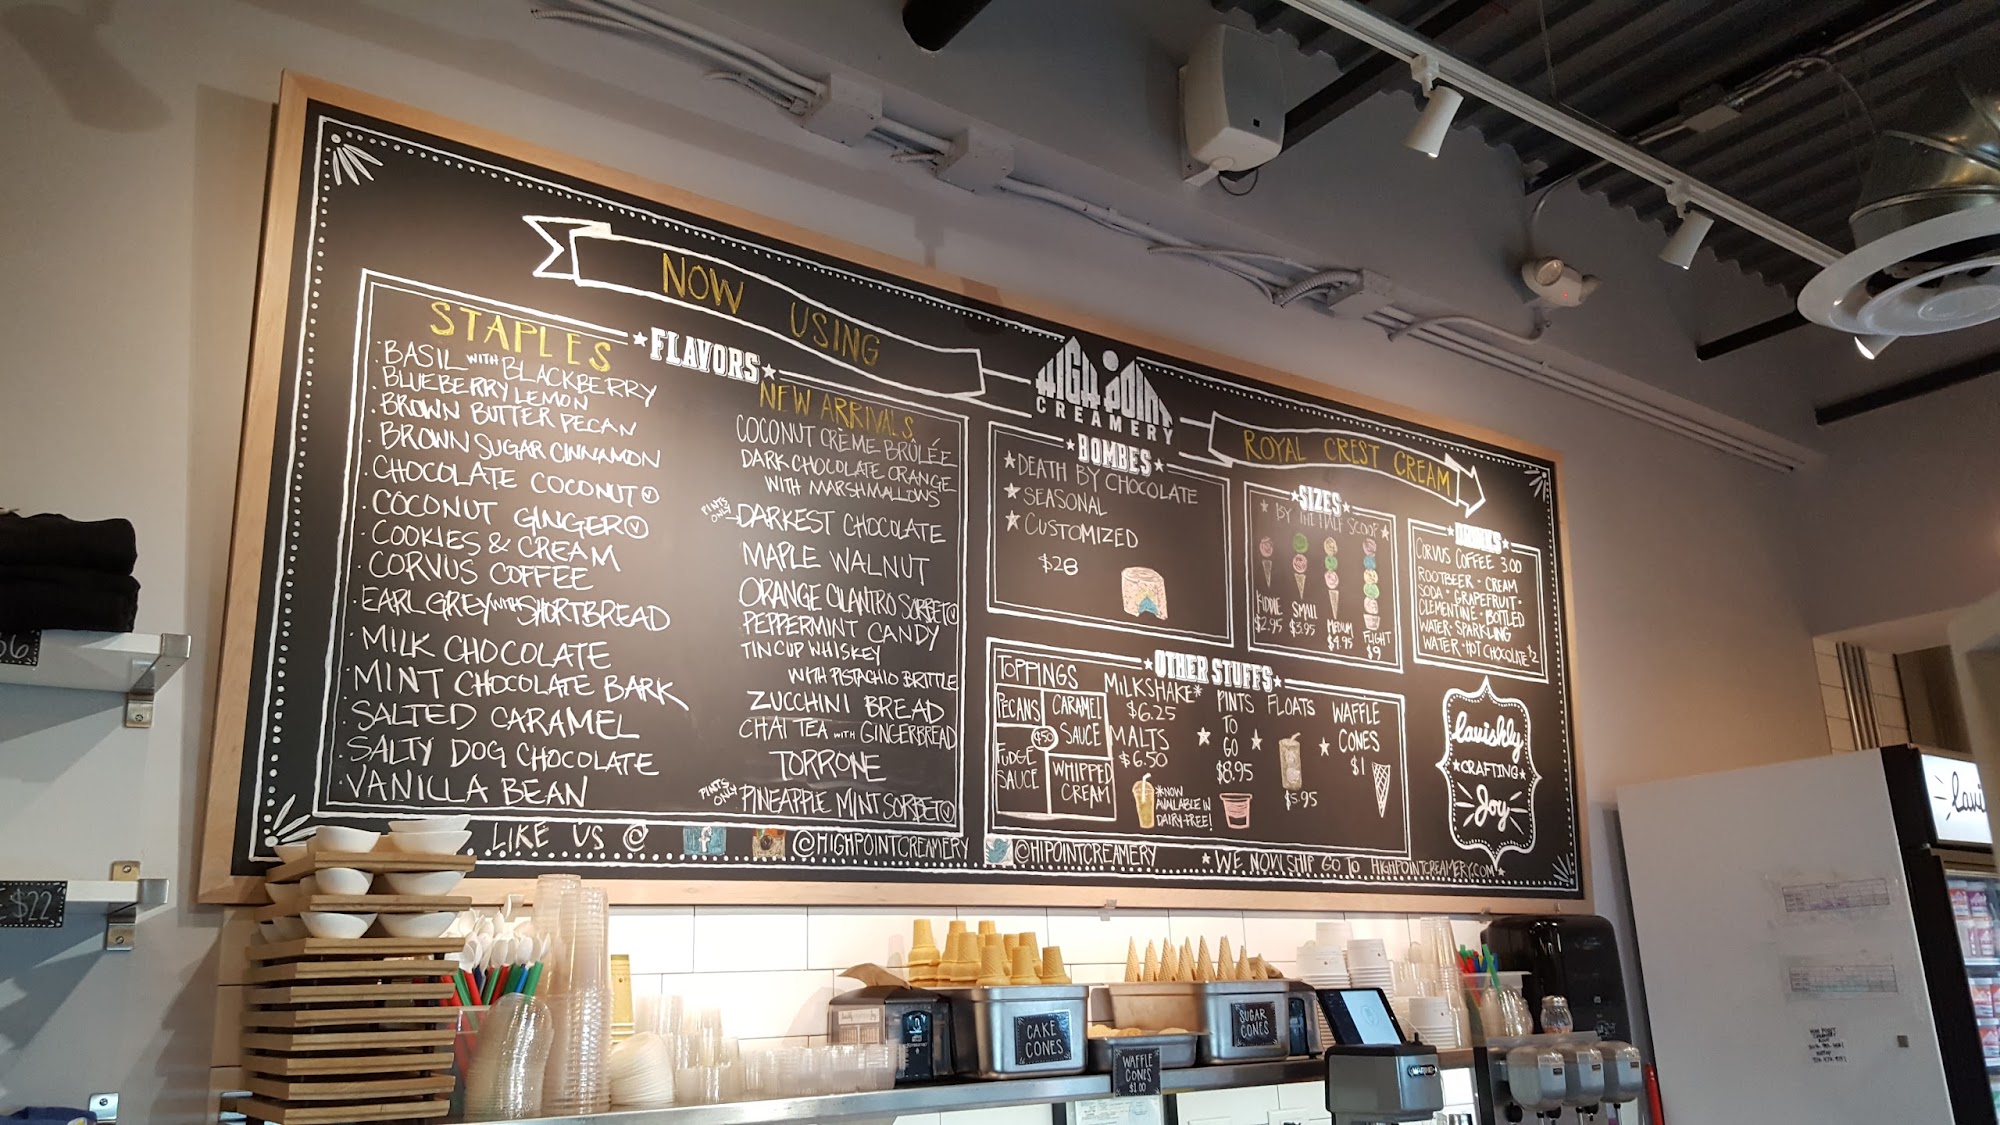 NOW USING
HIGH POINT
CREAMERY
ROYAL CREST CREAM
★ FLAVORS ★
STAPLES
· BASIL WITH BLACKBERRY
· BLUEBERRY LEMON
· BROWN BUTTER PECAN
· BROWN SUGAR CINNAMON
· CHOCOLATE COCONUT Ⓥ
· COCONUT GINGER Ⓥ
· COOKIES & CREAM
· CORVUS COFFEE
· EARL GREY WITH SHORTBREAD
· MILK CHOCOLATE
· MINT CHOCOLATE BARK
· SALTED CARAMEL
· SALTY DOG CHOCOLATE
· VANILLA BEAN
NEW ARRIVALS
COCONUT CRÈME BRÛLÉE
DARK CHOCOLATE ORANGE
WITH MARSHMALLOWS
PINTS
ONLY
DARKEST CHOCOLATE
MAPLE WALNUT
ORANGE CILANTRO SORBET Ⓥ
PEPPERMINT CANDY
TINCUP WHISKEY
WITH PISTACHIO BRITTLE
ZUCCHINI BREAD
CHAI TEA WITH GINGERBREAD
TORRONE
PINTS
ONLY
PINEAPPLE MINT SORBET Ⓥ
★ BOMBES ★
★ DEATH BY CHOCOLATE
★ SEASONAL
★ CUSTOMIZED
$28
★ SIZES ★
★ BY THE HALF SCOOP ★
KIDDIE
$2.95
SMALL
$3.95
MEDIUM
$4.95
FLIGHT
$9
★ DRINKS ★
CORVUS COFFEE 3.00
ROOTBEER · CREAM
SODA · GRAPEFRUIT ·
CLEMENTINE · BOTTLED
WATER · SPARKLING
WATER · HOT CHOCOLATE $2
★ OTHER STUFFS ★
TOPPINGS
PECANS
CARAMEL
SAUCE
FUDGE
SAUCE
WHIPPED
CREAM
MILKSHAKE*
$6.25
MALTS
$6.50
*NOW
AVAILABLE IN
DAIRY-FREE!
PINTS
TO
GO
$8.95
FLOATS
$5.95
WAFFLE
CONES
$1
lavishly
★ CRAFTING ★
Joy
LIKE US @ f @HIGHPOINTCREAMERY @HIPOINTCREAMERY ★ WE NOW SHIP GO TO HIGHPOINTCREAMERY.COM ★
$22
CAKE
CONES
WAFFLE
CONES
$1.00
SUGAR
CONES